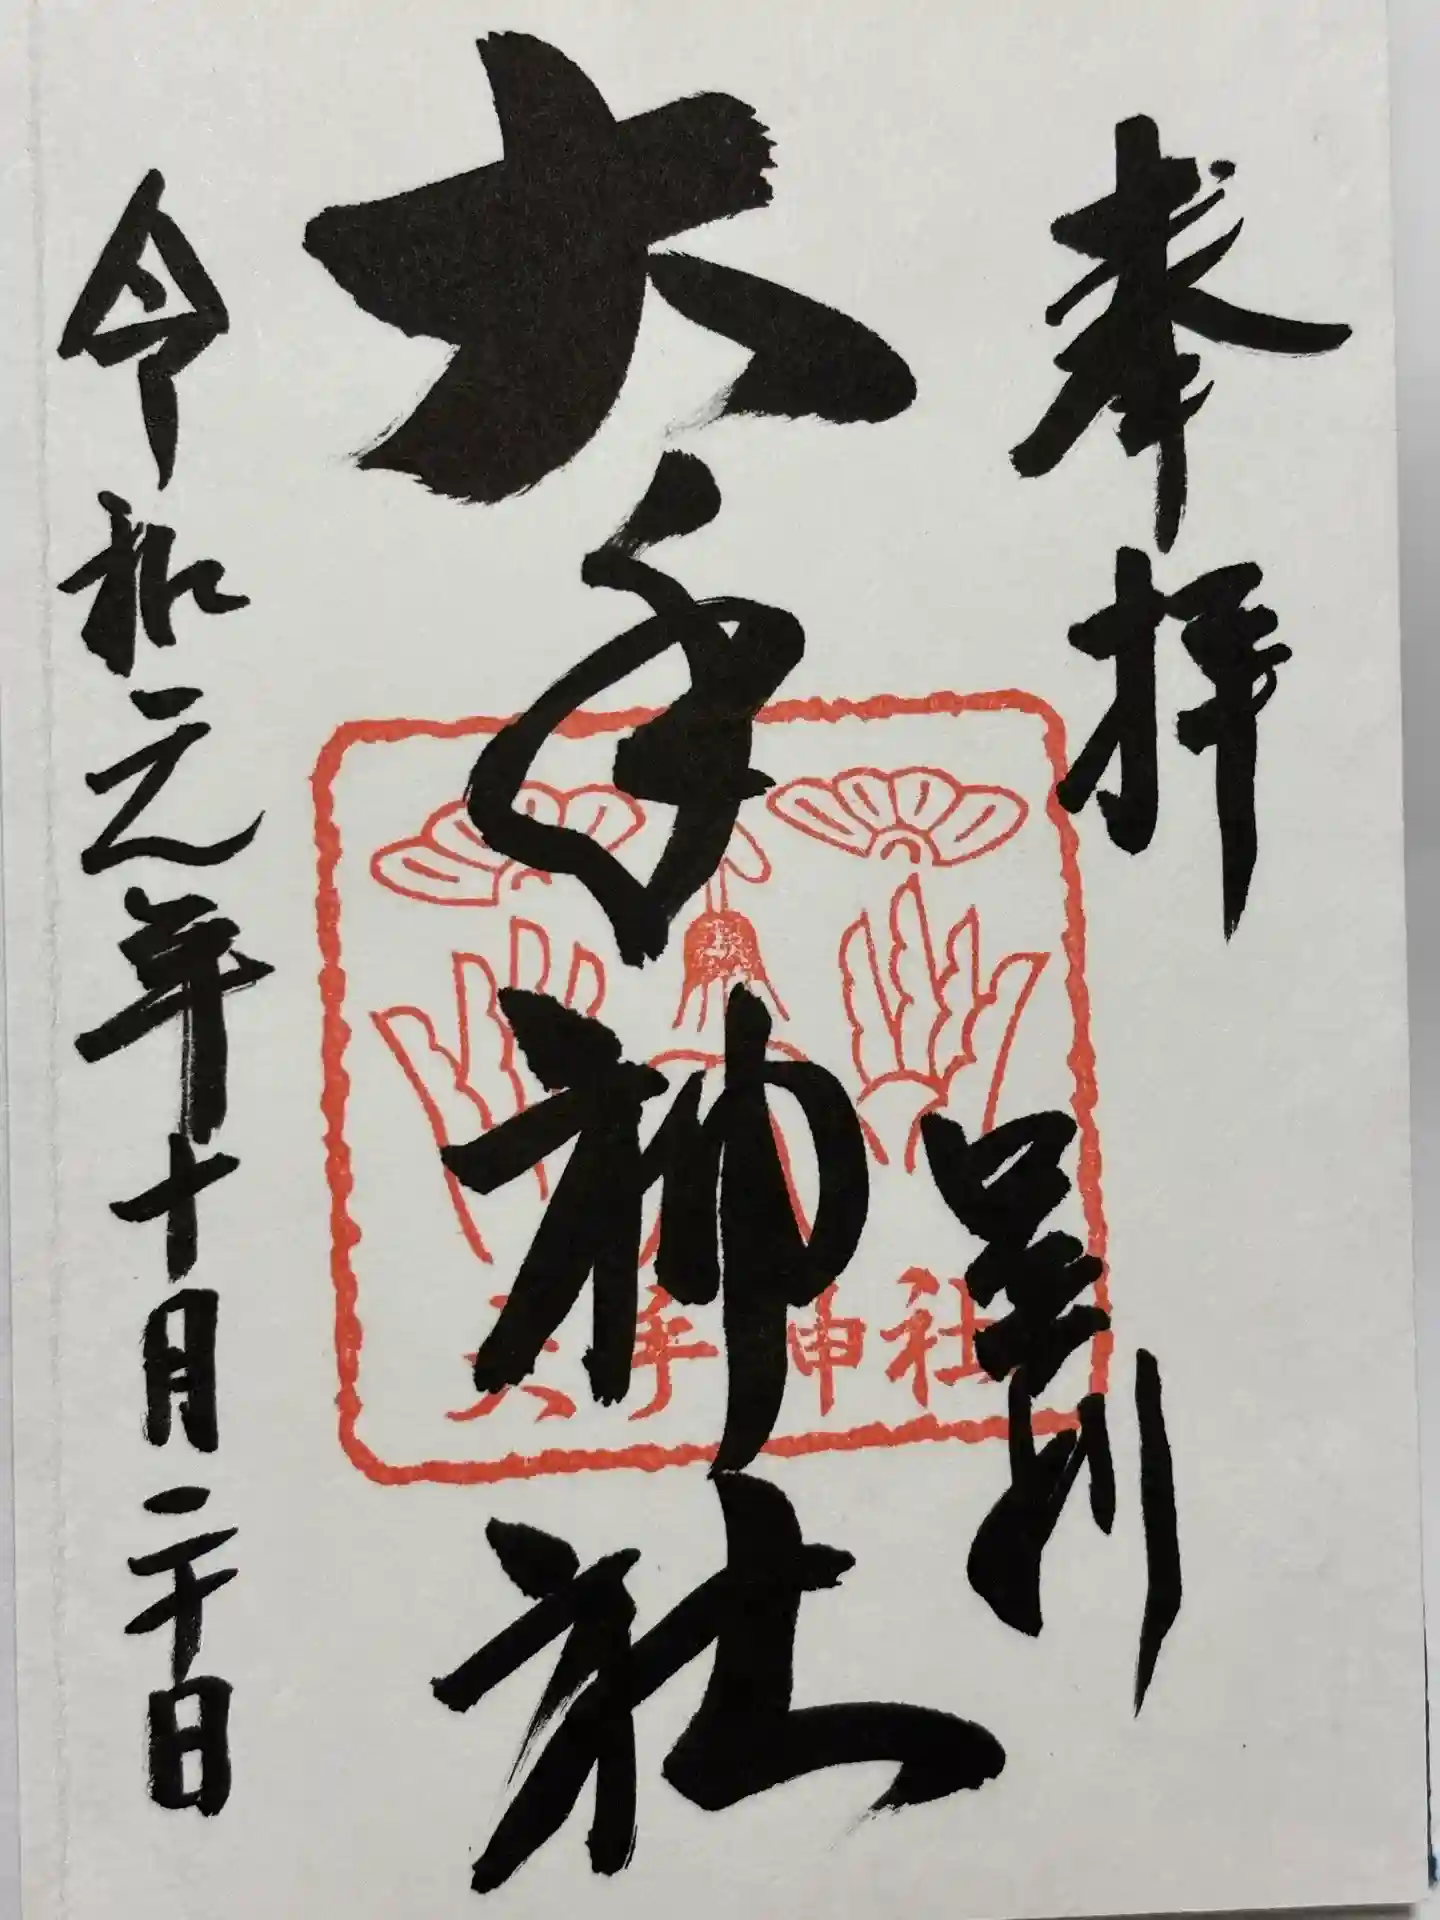 奉拝
黒川
大手神社
大手神社
令和元年十月二十日